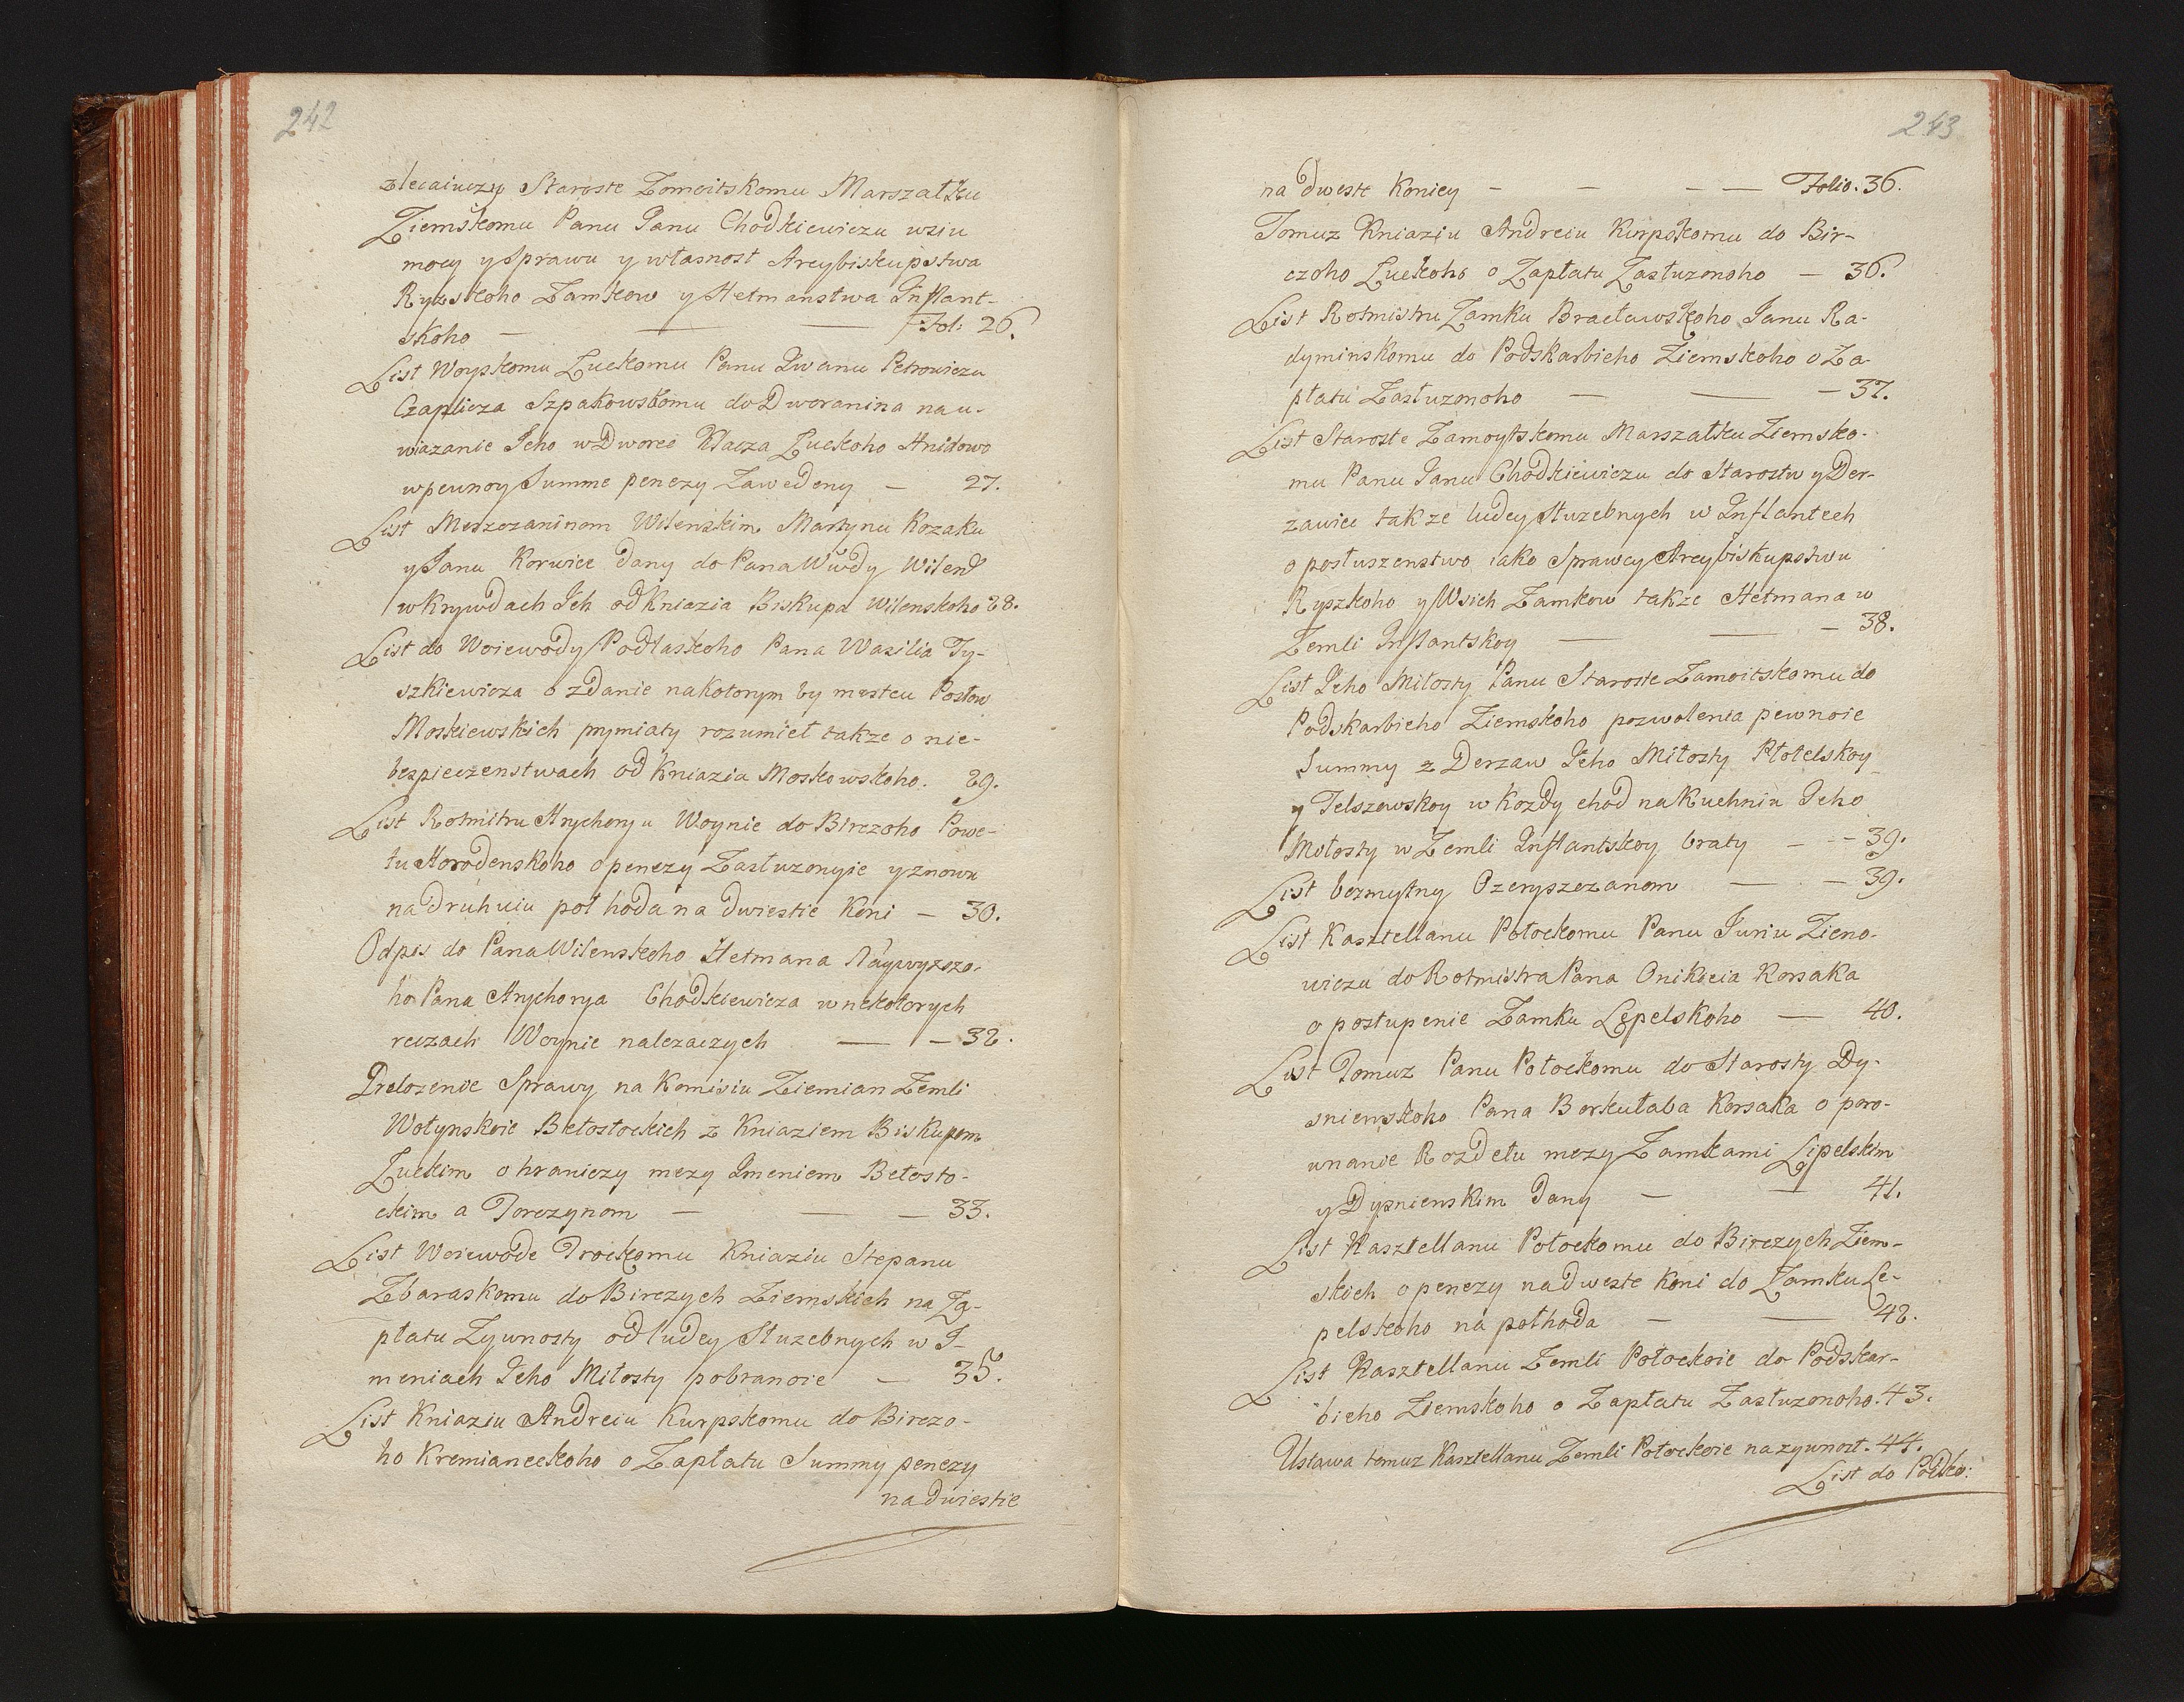 242
zlecaiuczy Staroste Zomoitskomu Marszałku
Ziemskomu Panu Janu Chodkiewiczu wsiu
mocy y Sprawu y własnost Arcybiskupstwa
Ryzskoho Zamkow y Hetmanstwa Inflant-
skoho — — — Fol: 26.
List Woyskomu Łuckomu Panu Iwanu Petrowiczu
Czaplicza Szpakowskomu do Dworanina na u-
wiazanie Jeho w Dworec Klucza Łuckoho Hnidowo
w pewnoy Summe penezy Zawedeny — 27.
List Meszczaninom Wilenskim Martynu Kozaku
y Janu Korwice dany do Pana Wwdy Wilen
w Krywdach Jch od Kniazia Biskupa Wilenskoho 28.
List do Woiewody Podlaskoho Pana Wasilia Ty-
szkiewicza o zdanie na kotorym by mestcu Posłow
Moskiewskich prymiaty rozumieł takze o nie-
bezpieczenstwach od Kniazia Moskowskoho. 29.
List Rotmitru Hrychoryu Woynie do Birczoho Powe-
tu Horodenskoho o penezy Zasłuzonyie y znowu
na druhuiu poł hoda na dwiestie Koni — 30.
Odpis do Pana Wilenskoho Hetmana Naywyzszo-
ho Pana Hrychorya Chodkiewicza w nekotorych
reczach Woynie nalezaczych — — 32.
Prelozenie Sprawy na Komisiu Ziemian Zemli
Wołynskoie Bełostockich z Kniaziem Biskupom
Łuckim o hraniczy mezy Imeniem Bełosto-
ckim a Torczynom — — — 33.
List Woiewode Trockomu Kniaziu Stepanu
Zbaraskomu do Birczych Ziemskich na Za-
płatu Zywnosty od ludey Słuzebnych w I-
meniach Jeho Miłosty pobranoie — 35.
List Kniaziu Andreiu Kurpskomu do Birczo-
ho Kremianeckoho o Zapłatu Summy penezy
na dwiestie
243
na dweste Koniey — — — — Folio. 36.
Tomuz Kniaziu Andreiu Kurpskomu do Bir-
czoho Łuckoho o Zapłatu Zasłuzonoho — 36.
List Rotmistru Zamku Bracławskoho Janu Ra-
dyminskomu do Podskarbieho Ziemskoho o Za-
płatu Zasłuzonoho — — — 37.
List Staroste Zamoytskomu Marszałku Ziemsko-
mu Panu Janu Chodkiewiczu do Starostw y Der-
zawiec takze ludey Słuzebnych w Inflantech
o posłuszenstwo iako Sprawcy Arcybiskupstwu
Ryszkoho y Wsich Zamkow takze Hetmana w
Zemli Inflantskoy — — — 38.
List Jeho Miłosty Panu Staroste Zamoitskomu do
Podskarbieho Ziemskoho pozwolenia pewnoie
Summy z Derzaw Jeho Miłosty Płotelskoy
y Telszowskoy w Kozdy chod na Kuchniu Jeho
Mołosty w Zemli Inflantskoy braty — — 39.
List bezmytny Ozeryszczanom — — 39.
List Kasztellanu Połockomu Panu Juriu Zieno-
wiczu do Rotmistra Pana Onikieia Korsaka
o postupenie Zamku Lepelskoho — 40.
List Tomuz Panu Połockomu do Starosty Dy-
sniewskoho Pana Borkułaba Korsaka o poro-
wnanie Rozdełu mezy Zamkami Lipelskim
y Dysnienskim dany — — 41.
List Kasztellanu Połockomu do Birczych Ziem-
skich o penezy na dweste Koni do Zamku Le-
pelskoho na połhoda — — 42.
List Kasztellanu Zemli Połockoie do Podskar-
bieho Ziemskoho o Zapłatu Zasłuzonoho. 43.
Ustawa tomuz Kasztellanu Zemli Połockoie na zywnost. 44.
List do